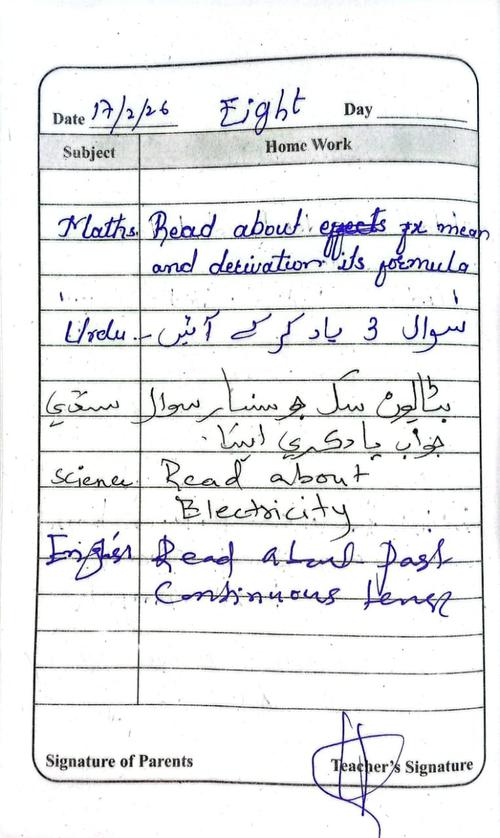 Date 17/2/26 Eight Day
Subject Home Work
Maths. Read about fx mean
and derivation its formula
Urdu - سوال 3 یاد کر کے آئیں
سنڌي سڪ جو سوال
جواب ياد ڪري
Science Read about
Electricity
English Read about Past
Continuous tense
Signature of Parents Teacher's Signature